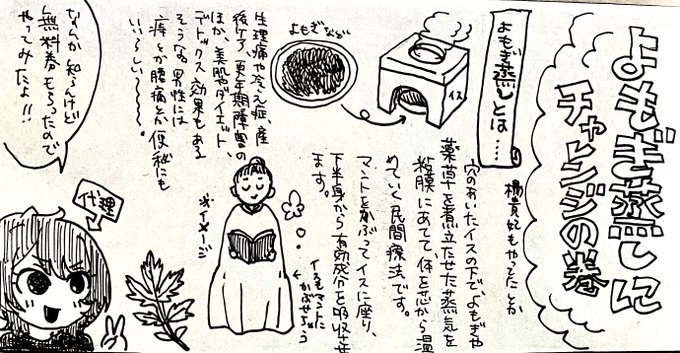 よもぎ蒸しに
チャレンジの巻
楊貴妃もやってたとか
よもぎ蒸しとは……
穴のあいたイスの下でよもぎや
薬草を煮立たせた蒸気を
粘膜にあてて体を芯から温
めていく民間療法です。
マントを被ってイスに座り、
下半身から有効成分を吸収させ
ます。
よもぎなど
イス
イスもマントに
かぶせちゃう
↑イメージ
生理痛や冷え症、産
後ケア、更年期障害の
ほか、美肌やダイエット
デトックス効果もある
そうな。男性には
痔とか腰痛とか便秘にも
いいらしい〜〜〜。
なんか知らんけど
無料券もらったので
やってみたよ!!
代理